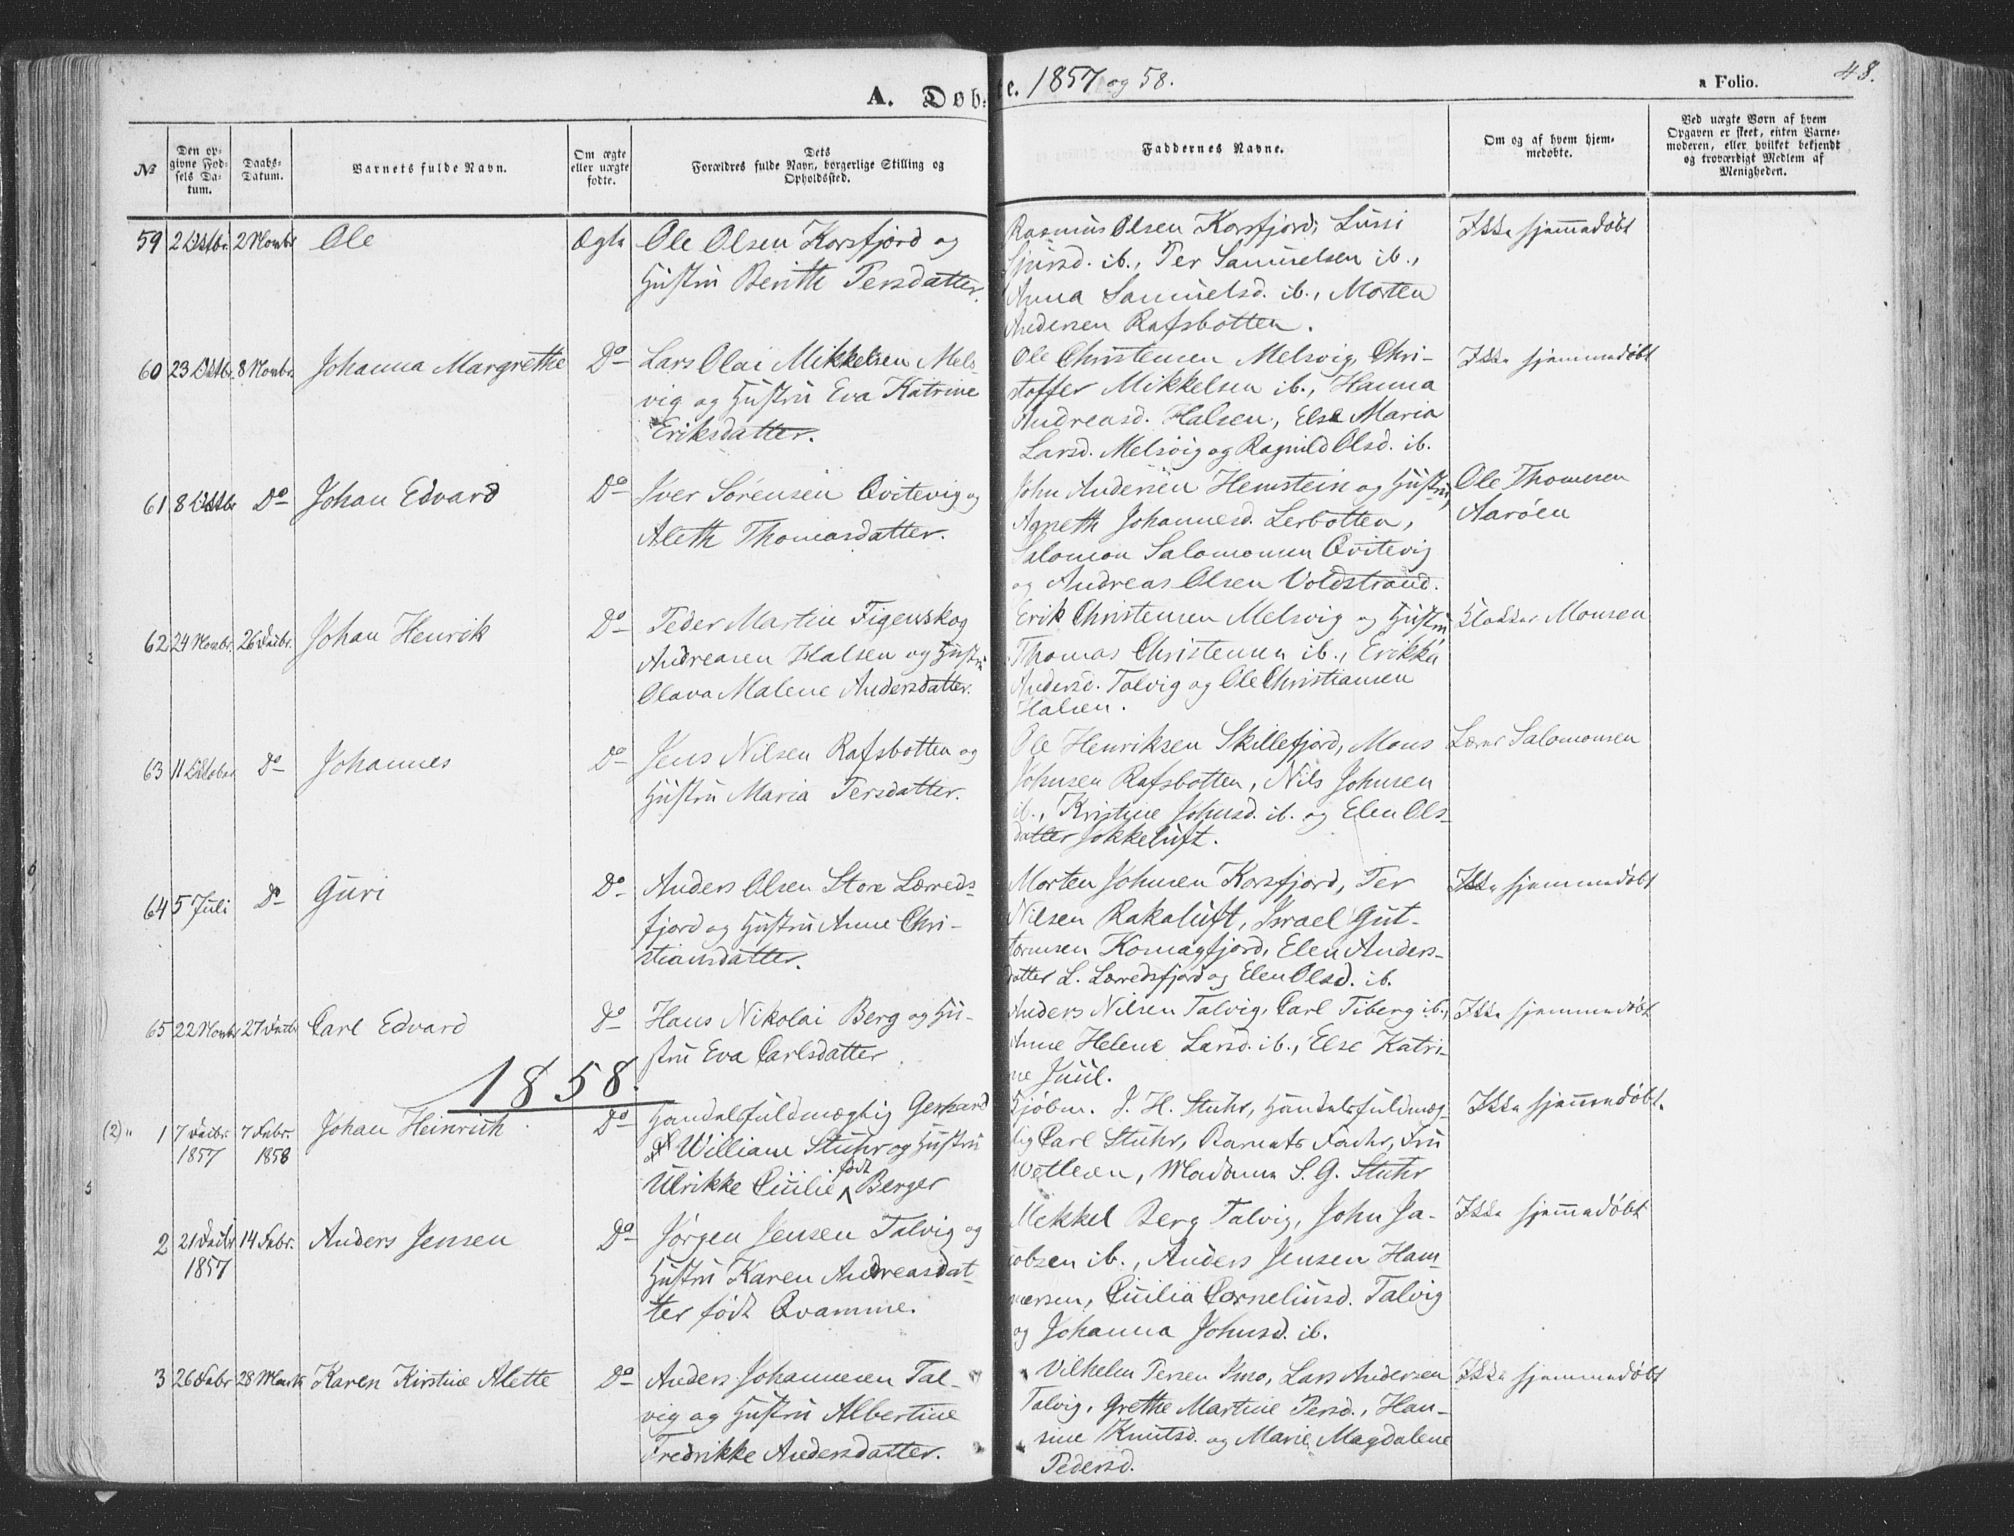 A. Døbte. 1857 og 58. a Folio. 48.
№ | Den opgivne Fødsels Datum. | Daabs-Datum. | Barnets fulde Navn. | Om ægte eller uægte fødte. | Dets Forældres fulde Navn, borgerlige Stilling og Opholdssted. | Faddernes Navne. | Om og af hvem hjemmedøbte. | Ved uægte Børn af hvem Opgaven er skeet, enten Barnemoderen, eller hvilket bekjendt og troværdigt Medlem af Menigheden.
59 2 Oktbr. 2 Novbr Ole Ægte Ole Olsen Korsfjord og Rasmus Olsen Korsfjord, Lussi Ikke hjemmedøbt
Hustru Berith Persdatter. Sjursd. ib., Per Samuelsen ib.,
Anna Samuelsd. ib., Morten
Andersen Rafsbotten.
60 23 Oktbr. 8 Novbr. Johanna Margrethe Do Lars Olai Mikkelsen Mels- Ole Christensen Melsvig, Chri- Ikke hjemmedøbt
vig og Hustru Eva Katrine stoffer Mikkelsen ib., Hanna
Eriksdatter. Andreasd. Halsen, Else Maria
Larsd. Melsvig og Ragnild Olsd. ib.
61 8 Oktbr Do Johan Edvard Do Iver Sørensen Qvitevig og John Andersen Hemstein og Hustru, Ole Thomesen
Aleth Thomasdatter. Agneth Johannesd. Lerbotten, Aarøen
Salomon Salomonsen Qvitevig
og Andreas Olsen Voldstrand.
62 24 Novbr. 26 Decbr. Johan Henrik Do Peder Martin Figenskog Erik Christensen Melsvig og Hustru Klokker Monsen
Andreasen Halsen og Hustru Thomas Christensen ib., Erikka
Olava Malene Andersdatter. Andersd. Talvig og Ole Christiansen
Halsen.
63 11 Oktober Do Johannes Do Jens Nilsen Rafsbotten og Ole Henriksen Skillefjord, Mons Lærer Salomonsen
Hustru Maria Persdatter. Johnsen Rafsbotten, Nils Johnsen
ib., Kristine Johnsd. ib. og Elen Ols-
datter Jokkeluft.
64 5 Juli Do Guri Do Anders Olsen Store Lerreds- Morten Johnsen Korsfjord, Per Ikke hjemmedøbt
fjord og Hustru Anne Chri- Nilsen Rakaluft, Israel Gut-
stiansdatter. tormsen Komagfjord, Elen Anders-
datter L. Lerredsfjord og Elen Olsd. ib.
65 22 Novbr 27 Decbr Carl Edvard Do Hans Nikolai Berg og Hu- Anders Nilsen Talvig, Carl Tiberg ib., Ikke hjemmedøbt
stru Eva Carlsdatter. Anne Helene Larsd. ib., Else Katri-
ne Juul.
1858.
(2) 1 7 Decbr. 7 Febr. Johan Heinrich Do Handelsfuldmægtig Gerhard Kjøbm. J. H. Stuhr, Handelsfuldmæg- Ikke hjemmedøbt.
1857 1858 William Stuhr og Hustru tig Carl Stuhr, Barnets Fader, Fru
Ulrikke Cicilie født Berger Wetlesen, Madame S. G. Stuhr
2 21 Decbr 14 Febr. Anders Jensen Do Jørgen Jensen Talvig og Mekkel Berg Talvig, John Ja- Ikke hjemmedøbt
1857 Hustru Karen Andreasdat- cobsen ib., Anders Jensen Ham-
ter født Qvamme. mersen, Cicilia Corneliusd. Talvig
og Johanna Johnsd. ib.
3 26 Febr 28 Marts Karen Kirstine Alette Do Anders Johannesen Tal- Vilhelm Persen Smo, Lars Andersen Ikke hjemmedøbt
vig og Hustru Albertine Talvig, Grethe Martine Persd., Han-
Fredrikke Andersdatter. sine Knutsd. og Marie Magdalene
Pedersd.